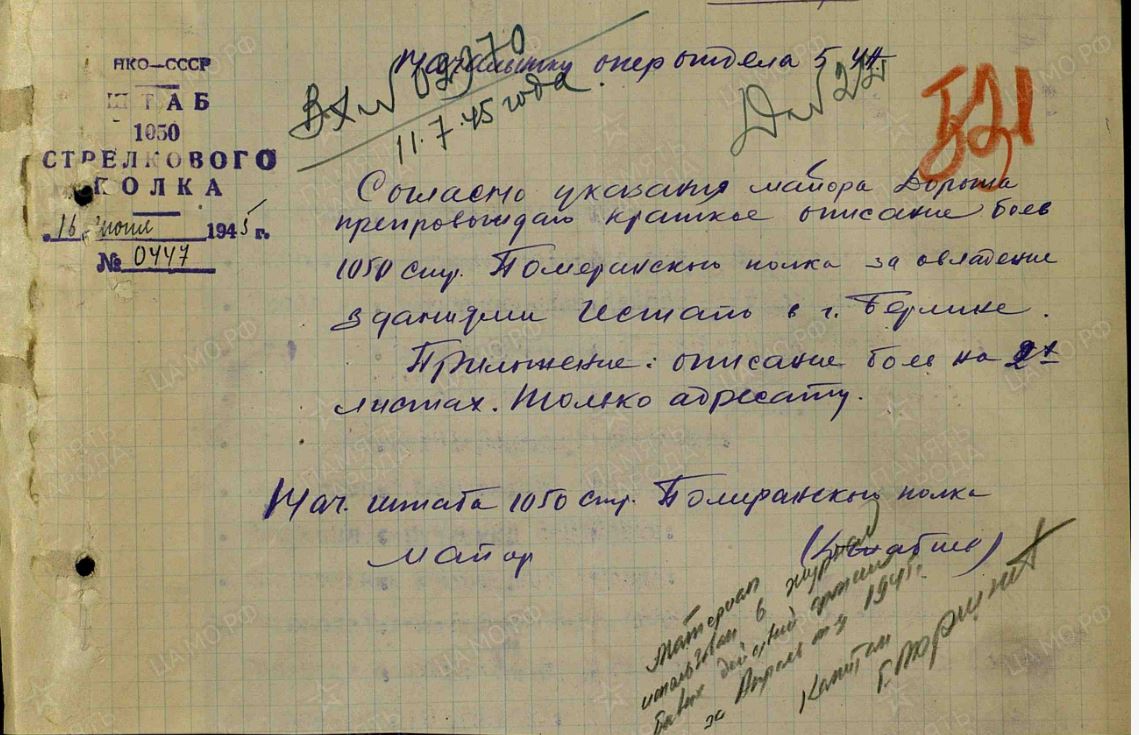 НКО—СССР
ШТАБ
1050
СТРЕЛКОВОГО
ПОЛКА
"16" июля 1945 г.
№ 0447
Вх № 02970
11.7.45 года.
Начальнику оперотдела 5 УА
Д № 22
Согласно указания майора Дорыша
препровождаю краткое описание боев
1050 стр. Померанского полка за овладение
зданиями Гестапо в г. Берлине.
Приложение: описание боев на 2х
листах. Только адресату.
Нач. штаба 1050 стр. Померанского полка
майор
Материал
использован в журнал
боевых действий армии
за Апрель м-ц 1945г.
Капитан